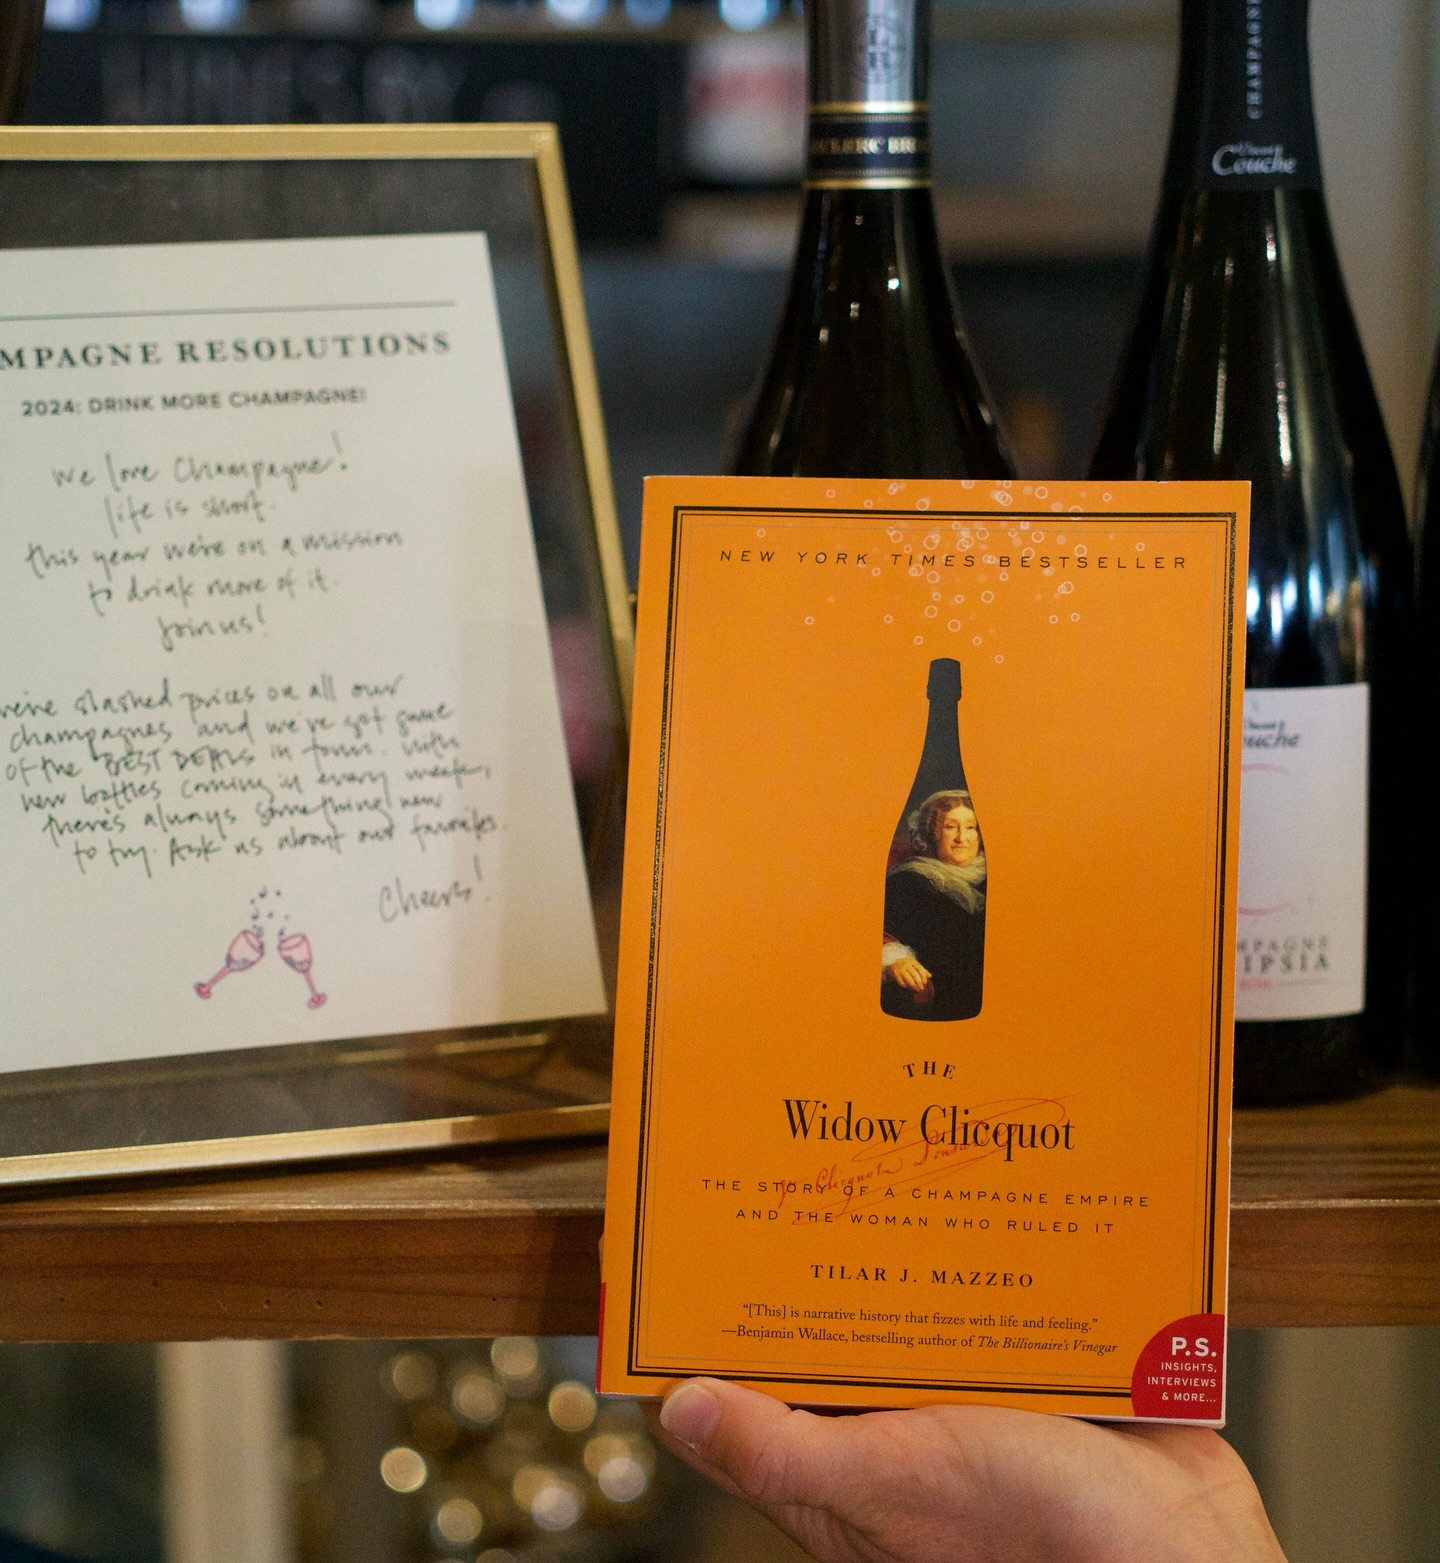 MPAGNE RESOLUTIONS
2024: DRINK MORE CHAMPAGNE!
we love Champagne!
life is short.
this year we're on a mission
to drink more of it.
Join us!
we've slashed prices on all our
champagnes and we've got some
of the BEST DEALS in town. With
new bottles coming in every week,
there's always something new
to try. Ask us about our favorites.
Cheers!
CLERC BR
CHAMPAGNE
Vincent
Couche
NEW YORK TIMES BESTSELLER
THE
Widow Clicquot
THE STORY OF A CHAMPAGNE EMPIRE
AND THE WOMAN WHO RULED IT
TILAR J. MAZZEO
“[This] is narrative history that fizzes with life and feeling.”
—Benjamin Wallace, bestselling author of The Billionaire's Vinegar
P.S.
INSIGHTS,
INTERVIEWS
& MORE...
ouche
MPAGNE
IPSIA